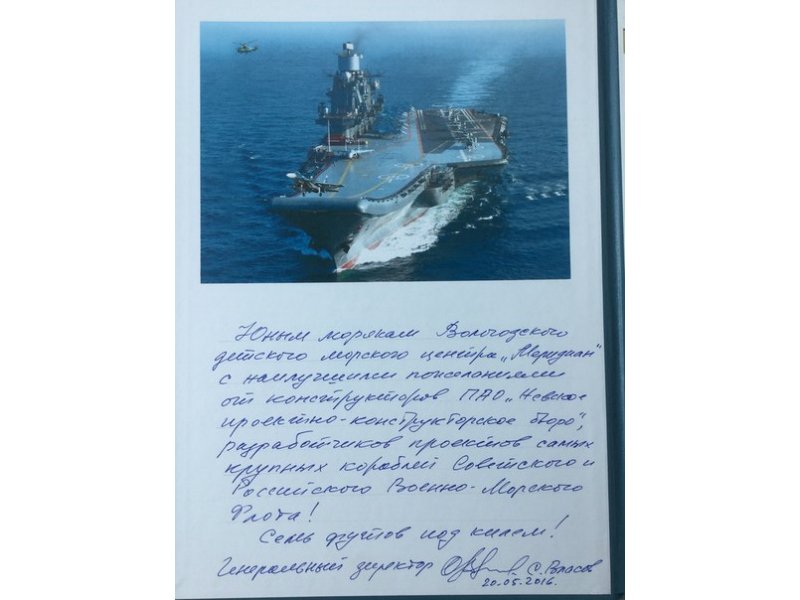 Юным морякам Вологодского
детского морского центра „Меридиан"
с наилучшими пожеланиями
от конструкторов ПАО „Невское
проектно-конструкторское бюро",
разработчиков проектов самых
крупных кораблей Советского и
Российского Военно-Морского
Флота!
Семь футов под килем!
Генеральный директор С. Власов
20.05.2016.